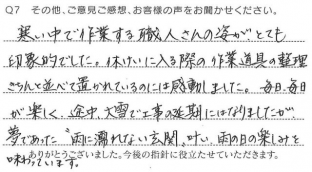 Q7 その他、ご意見ご感想、お客様の声をお聞かせください。
寒い中で作業する職人さんの姿がとても
印象的でした。休けいに入る際の作業道具の整理
きちんと並べて置かれているのには感動しました。毎日、毎日
が楽しく、途中、大雪で工事の延期にはなりましたが
夢であった"雨に濡れない玄関"叶い、雨の日の楽しみを
味わっています。
ありがとうございました。今後の指針に役立たせていただきます。